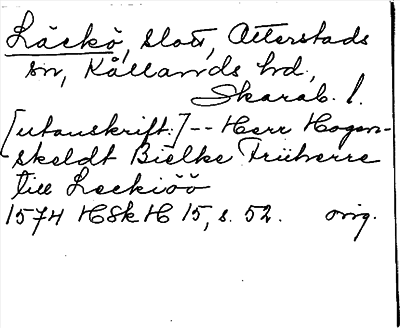 Läckö, slott, Otterstads
sn, Kållands hd,
Skarab. l.
[utanskrift:] -- Herr Hogen-
skeldt Bielke Friiherre
till Leckiöö
1574 HSkH 15, s. 52. orig.